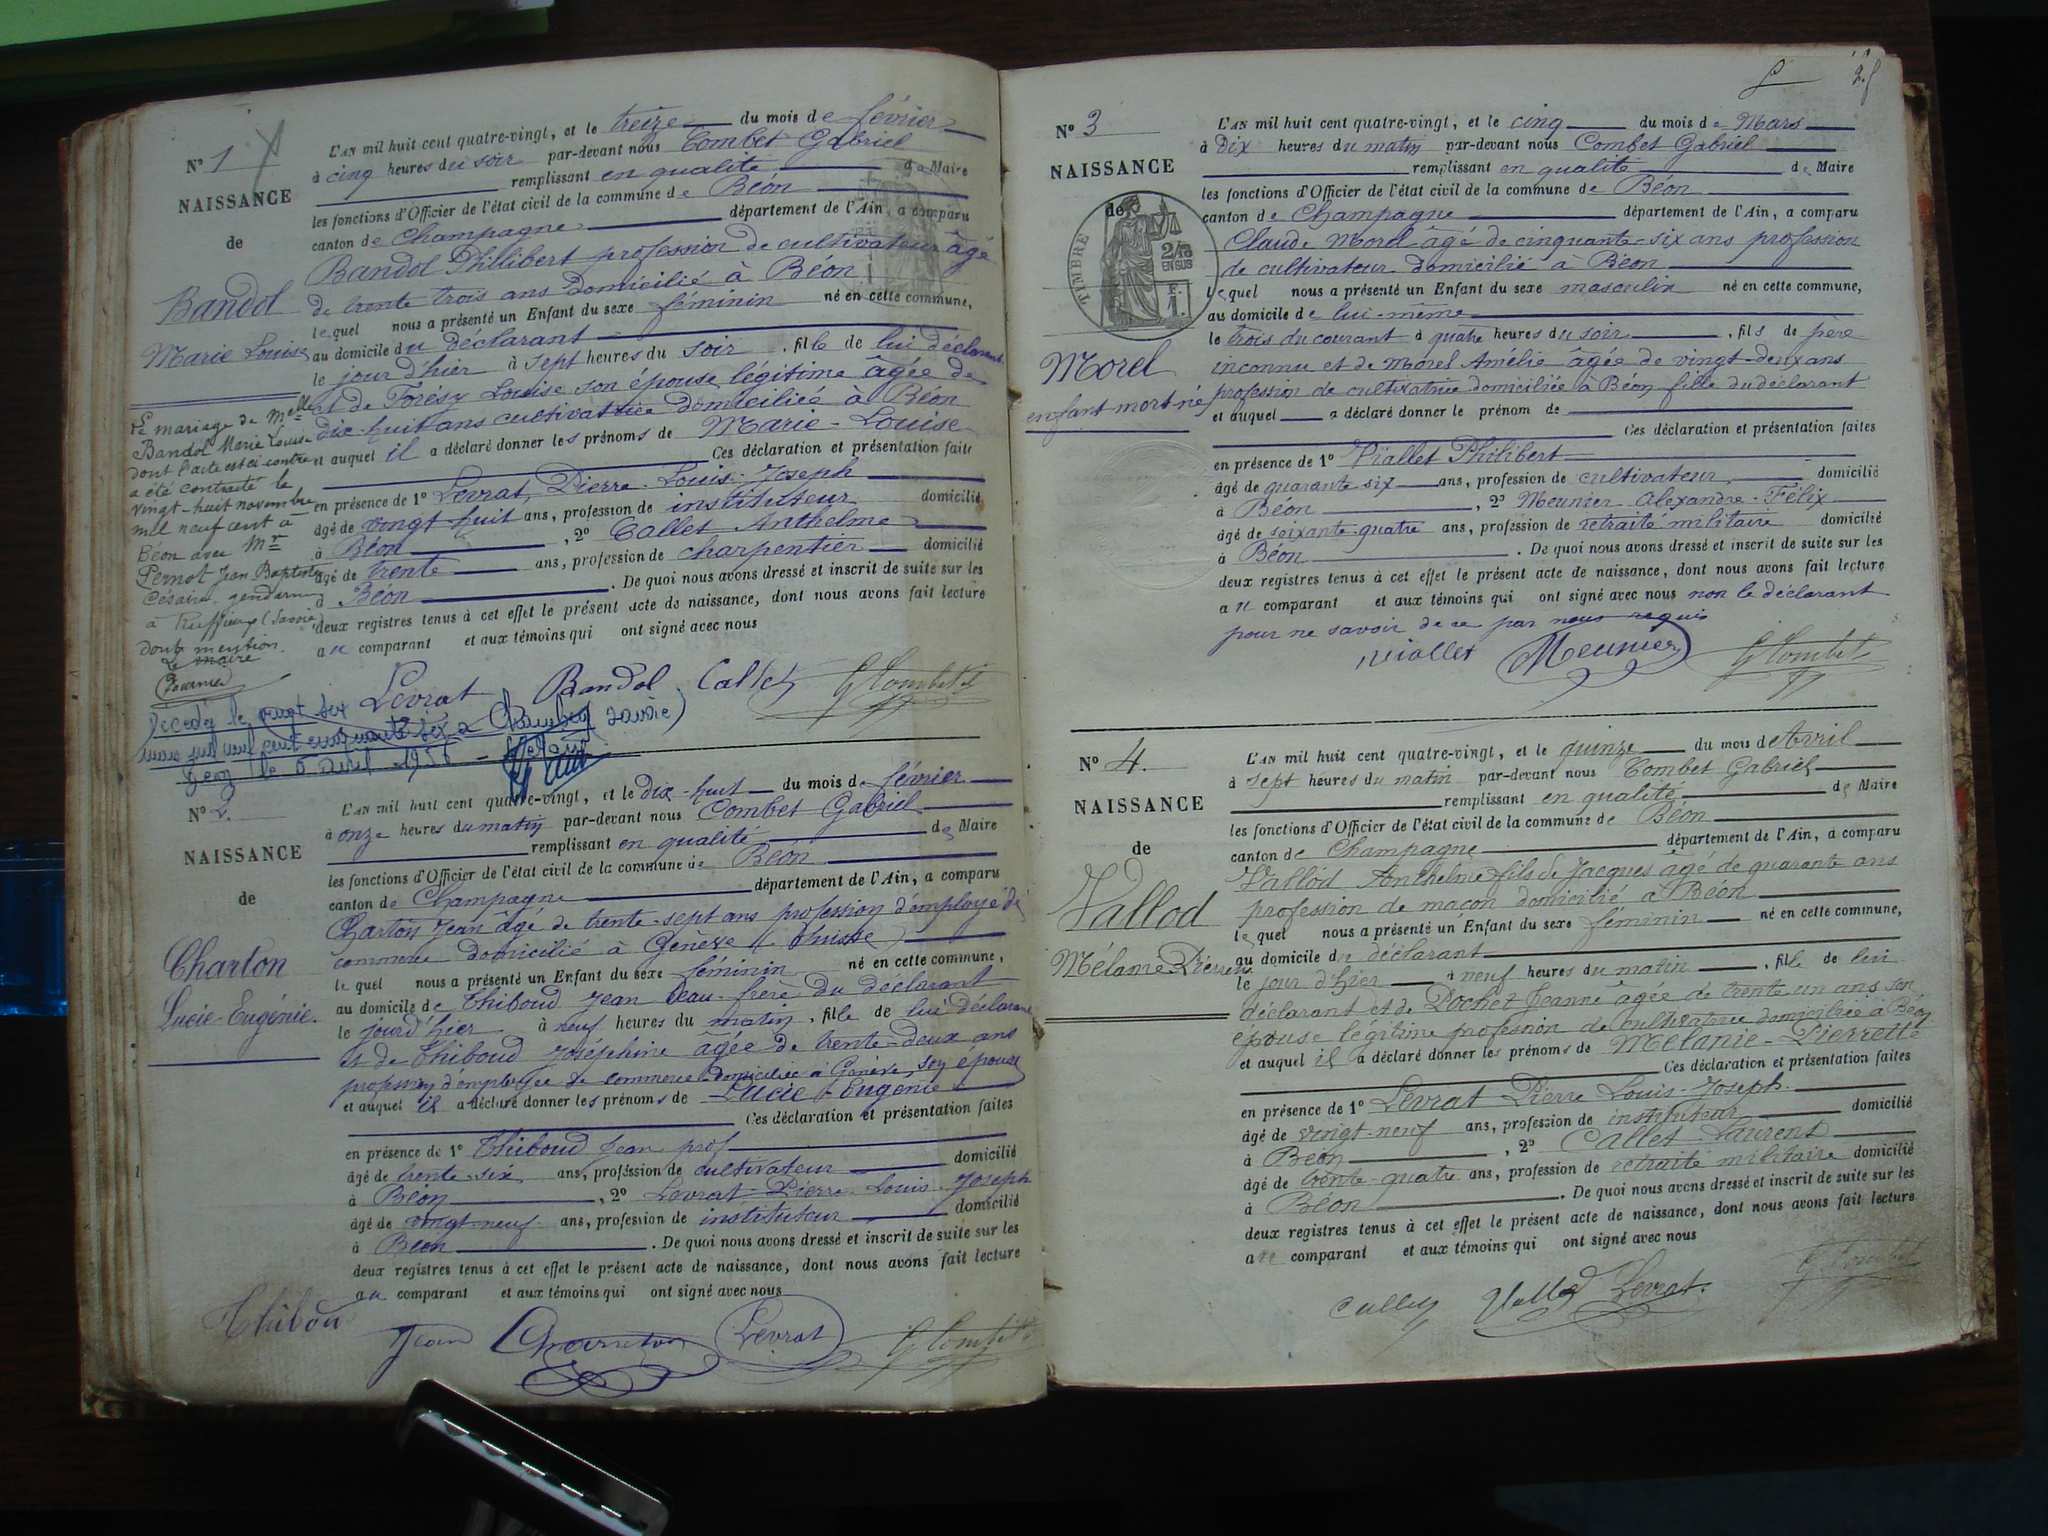 N° 1
NAISSANCE
de
Bandol
Marie Louise
Le mariage de Melle
Bandol Marie Louise
dont l'acte est ci contre
a été contracté le
vingt-huit novembre
mil neuf cent à
Béon avec Mr
Pernot Jean Baptiste
Césaire gendarme
à Ruffieux (Savoie)
dont mention
Le maire
Fournier
Décédée le vingt six
mars mil neuf cent cinquante six à Chambéry Savoie)
le 6 avril 1956
L'AN mil huit cent quatre-vingt, et le treize du mois de février
à cinq heures du soir par-devant nous Combet Gabriel
remplissant en qualité de Maire
les fonctions d'Officier de l'état civil de la commune de Béon
canton de Champagne département de l'Ain, a comparu
Bandol Phillibert profession de cultivateur âgé
de trente trois ans domicilié à Béon
lequel nous a présenté un Enfant du sexe féminin né en cette commune,
au domicile du déclarant
le jour d'hier à sept heures du soir, fille de lui déclarant
et de Forésy Louise son épouse légitime âgée de
dix-huit ans cultivatrice domiciliée à Béon
et auquel il a déclaré donner les prénoms de Marie-Louise
Ces déclaration et présentation faites
en présence de 1° Levrat Pierre Louis Joseph
âgé de vingt huit ans, profession de instituteur domicilié
à Béon, 2° Callet Anthelme
âgé de trente ans, profession de charpentier domicilié
à Béon. De quoi nous avons dressé et inscrit de suite sur les
deux registres tenus à cet effet le présent acte de naissance, dont nous avons fait lecture
au comparant et aux témoins qui ont signé avec nous
Levrat Bandol Callet G Combet
N° 2
NAISSANCE
de
Charton
Lucie-Eugénie.
L'AN mil huit cent quatre-vingt, et le dix-huit du mois de février
à onze heures du matin par-devant nous Combet Gabriel
remplissant en qualité de Maire
les fonctions d'Officier de l'état civil de la commune de Béon
canton de Champagne département de l'Ain, a comparu
Charton Jean âgé de trente-sept ans profession d'employé de
commerce domicilié à Genève (Suisse)
lequel nous a présenté un Enfant du sexe féminin né en cette commune,
au domicile de Thiboud Jean beau-frère du déclarant
le jour d'hier à neuf heures du matin, fille de lui déclarant
et de Thiboud Joséphine âgée de trente-deux ans
profession d'employée de commerce domiciliée à Genève, son épouse
et auquel il a déclaré donner les prénoms de Lucie-Eugénie
Ces déclaration et présentation faites
en présence de 1° Thiboud Jean prof
âgé de trente-six ans, profession de cultivateur domicilié
à Béon, 2° Levrat Pierre Louis Joseph
âgé de vingt-neuf ans, profession de instituteur domicilié
à Béon. De quoi nous avons dressé et inscrit de suite sur les
deux registres tenus à cet effet le présent acte de naissance, dont nous avons fait lecture
au comparant et aux témoins qui ont signé avec nous
Thibou Jean Charreton Levrat G Combet
25
N° 3
NAISSANCE
de
TIMBRE
2/10
EN SUS
Morel
enfant mort-né
L'AN mil huit cent quatre-vingt, et le cinq du mois de Mars
à Dix heures du matin par-devant nous Combet Gabriel
remplissant en qualité de Maire
les fonctions d'Officier de l'état civil de la commune de Béon
canton de Champagne département de l'Ain, a comparu
Claude Morel âgé de cinquante-six ans profession
de cultivateur domicilié à Béon
lequel nous a présenté un Enfant du sexe masculin né en cette commune,
au domicile de lui-même
le trois du courant à quatre heures du soir, fils de père
inconnu et de Morel Amélie âgée de vingt-deux ans
profession de cultivatrice domiciliée à Béon fille du déclarant
et auquel a déclaré donner le prénom de
Ces déclaration et présentation faites
en présence de 1° Viallet Philibert
âgé de quarante six ans, profession de cultivateur domicilié
à Béon, 2° Meunier Alexandre-Félix
âgé de soixante-quatre ans, profession de retraité militaire domicilié
à Béon. De quoi nous avons dressé et inscrit de suite sur les
deux registres tenus à cet effet le présent acte de naissance, dont nous avons fait lecture
au comparant et aux témoins qui ont signé avec nous non le déclarant
pour ne savoir de ce par nous requis
Viallet Meunier G Combet
N° 4.
NAISSANCE
de
Vallod
Mélanie Pierrette
L'AN mil huit cent quatre-vingt, et le quinze du mois de Avril
à sept heures du matin par-devant nous Combet Gabriel
remplissant en qualité de Maire
les fonctions d'Officier de l'état civil de la commune de Béon
canton de Champagne département de l'Ain, a comparu
Vallod Anthelme fils de Jacques âgé de quarante ans
profession de maçon domicilié à Béon
lequel nous a présenté un Enfant du sexe féminin né en cette commune,
au domicile du déclarant
le jour d'hier à neuf heures du matin, fille de lui
déclarant et de Pochet Jeanne âgée de trente un ans son
épouse légitime profession de cultivatrice domiciliée à Béon
et auquel il a déclaré donner les prénoms de Mélanie-Pierrette
Ces déclaration et présentation faites
en présence de 1° Levrat Pierre Louis-Joseph
âgé de vingt-neuf ans, profession de instituteur domicilié
à Béon, 2° Callet Laurent
âgé de trente-quatre ans, profession de retraité militaire domicilié
à Béon. De quoi nous avons dressé et inscrit de suite sur les
deux registres tenus à cet effet le présent acte de naissance, dont nous avons fait lecture
au comparant et aux témoins qui ont signé avec nous
Callet Vallod Levrat. G Combet